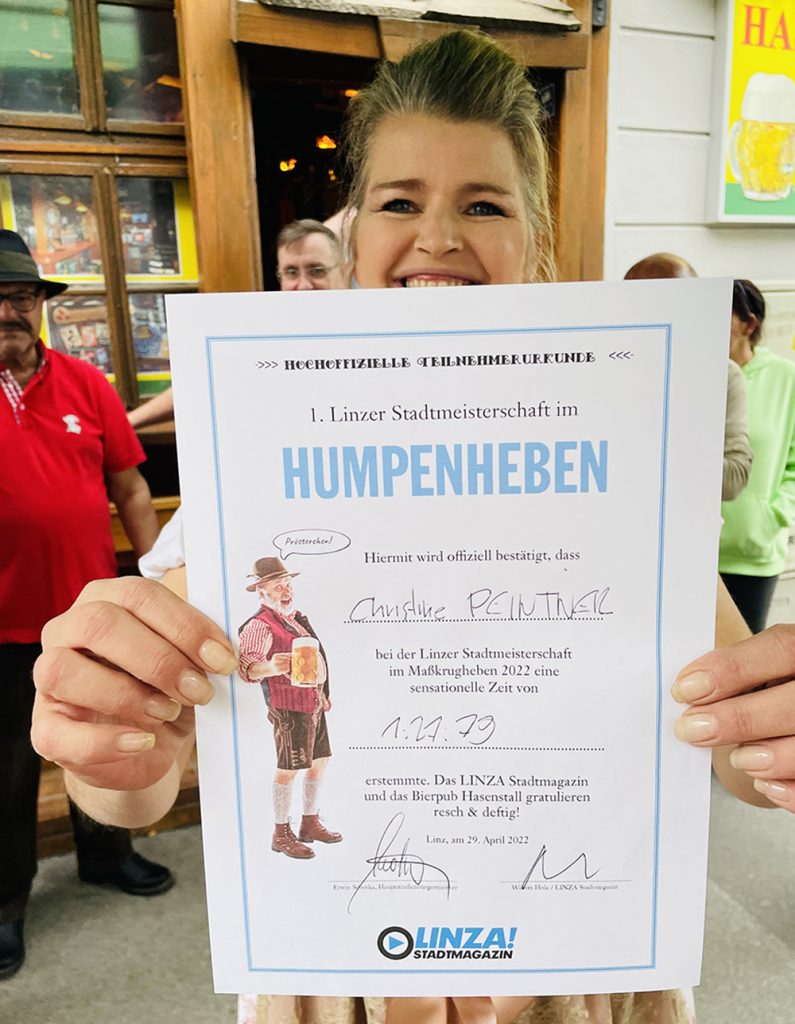 HA
->>> HOCHOFFIZIELLE TEILNEHMERURKUNDE <<<-
1. Linzer Stadtmeisterschaft im
HUMPENHEBEN
Prösterchen!
Hiermit wird offiziell bestätigt, dass
Christine PEINTNER
bei der Linzer Stadtmeisterschaft
im Maßkrugheben 2022 eine
sensationelle Zeit von
1.27.79
erstemmte. Das LINZA Stadtmagazin
und das Bierpub Hasenstall gratulieren
resch & deftig!
Linz, am 29. April 2022
Erwin
Holz / LINZA Stadtmagazin
LINZA!
STADTMAGAZIN